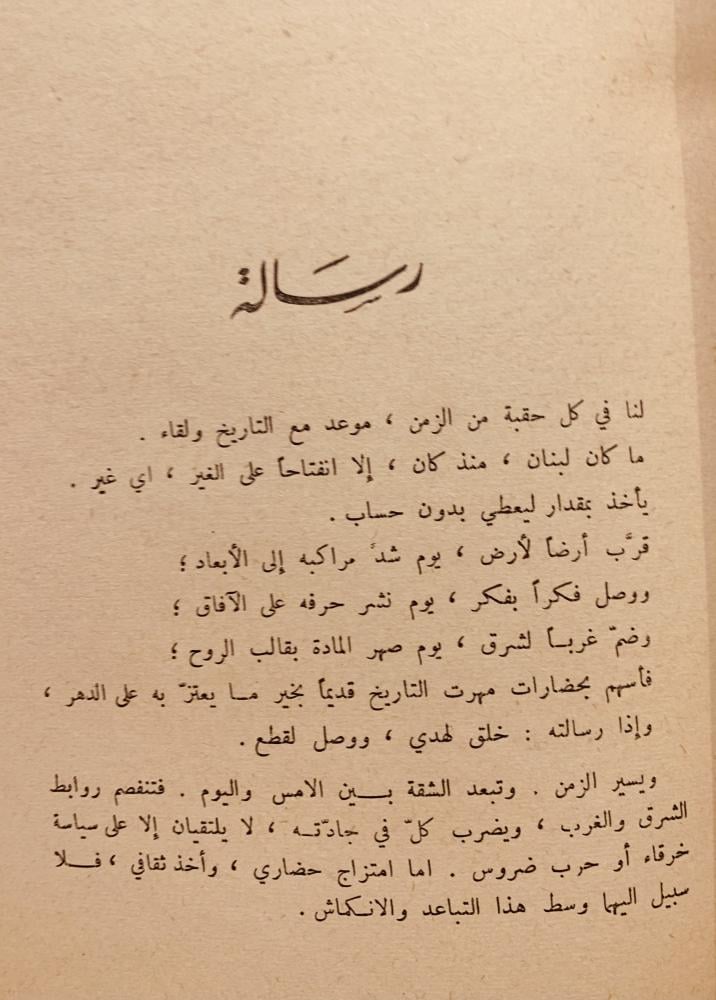 رسَالة
لنا في كل حقبة من الزمن ، موعد مع التاريخ ولقاء .
ما كان لبنان ، منذ كان ، إلا انفتاحاً على الغير ، اي غير .
يأخذ بمقدار ليعطي بدون حساب .
قرَّب أرضاً لأرض ، يوم شدَّ مراكبه إلى الأبعاد ؛
ووصل فكراً بفكر ، يوم نشر حرفه على الآفاق ؛
وضمّ غربـاً لشرق ، يوم صهر المادة بقالب الروح ؛
فأسهم بحضارات مهرت التاريخ قديماً بخير مـا يعتزّ به على الدهر ،
وإذا رسالته : خلق لهدي ، ووصل لقطع .
ويسير الزمن . وتبعد الشقة بـين الامس واليوم . فتنفصم روابط
الشرق والغرب ، ويضرب كلّ في جادّتـه ، لا يلتقيان إلا على سياسة
خرقاء أو حرب ضروس . اما امتزاج حضاري ، وأخذ ثقافي ، فـلا
سبيل اليهما وسط هذا التباعد والانـكماش .